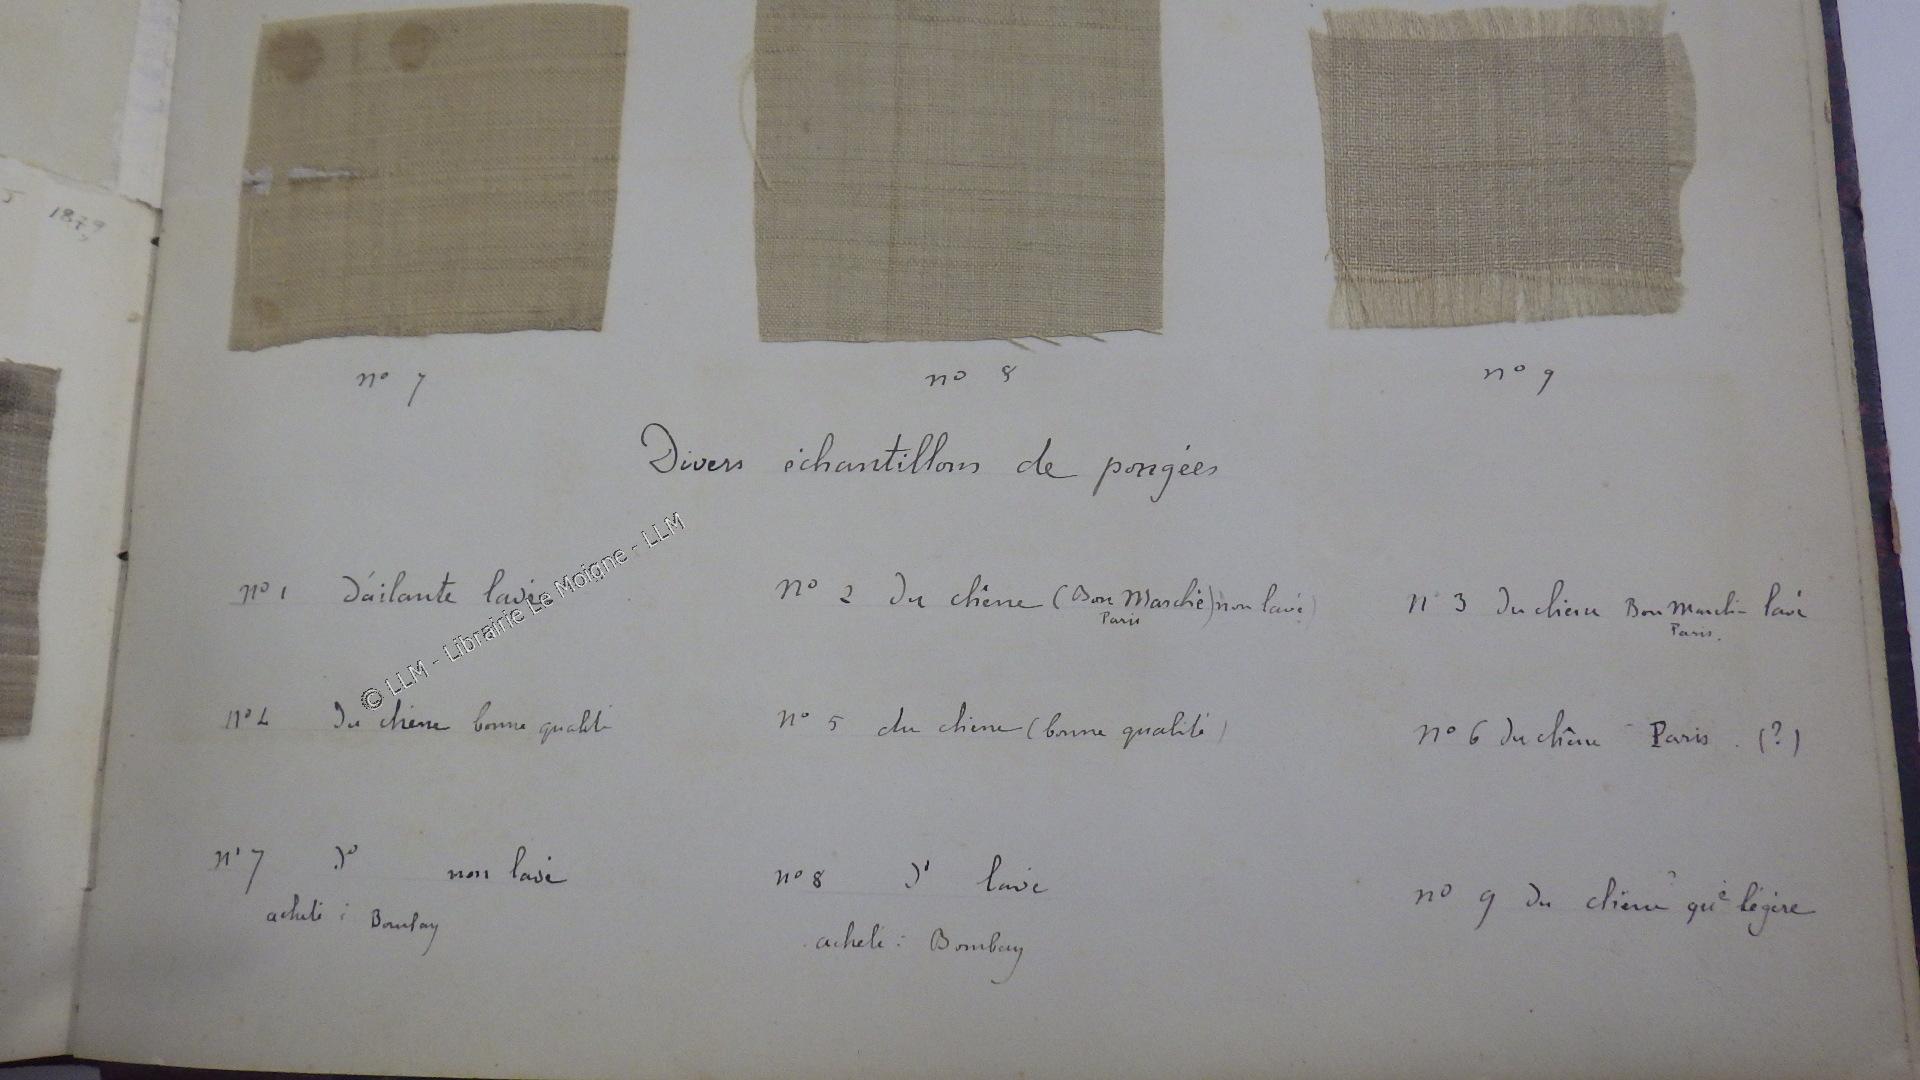 1879
nº 7
nº 8
nº 9
Divers échantillons de pongées
nº 1 D'ailante lavé
nº 2 Du chêne (Bon Marché) non lavé
Paris
n 3 Du chêne Bon Marché lavé
Paris.
nº 4 Du chêne bonne qualité
nº 5 du chêne (bonne qualité)
nº 6 Du chêne Paris . (?)
nº 7 Dº non lavé
acheté : Bombay
nº 8 Dº lavé
acheté : Bombay
nº 9 Du chêne ? qué légère
© LLM - Librairie Le Moigne - LLM